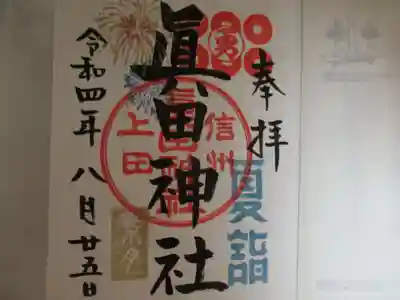 奉拝
夏詣
眞田神社
信州
上田
眞田神社
令和四年八月廿五日